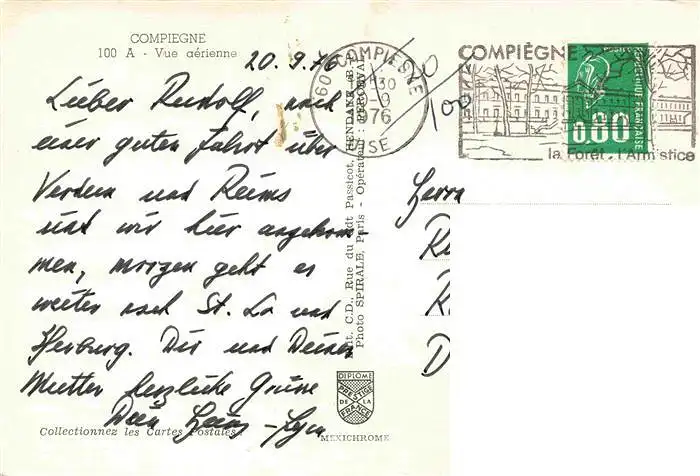 COMPIEGNE
100 A - Vue aérienne
20.9.76
Lieber Rudolf, nach
einer guten Fahrt über
Verdun und Reims
sind wir hier angekom-
men, morgen geht es
weiter nach St. Lo und
Dir und Deiner
Mutter herzliche Grüße
Dein
Collectionnez les Cartes Postales
Edit. C.D., Rue du Petit Passicot,
Photo SPIRALE, Paris - Opérateur:
DIPLOME
PRESTIGE
DE LA
FRANCE
MEXICHROME
60 COMPIEGNE
1976
OISE
100
COMPIÈGNE
la Forêt, l'Armistice
POSTES
REPUBLIQUE FRANÇAISE
0,80
Herrn
R
R
D